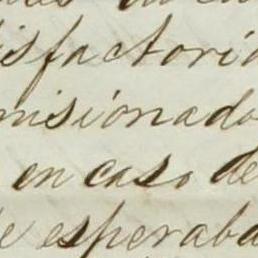 isfactoria
misionado
en caso de
e esperaba